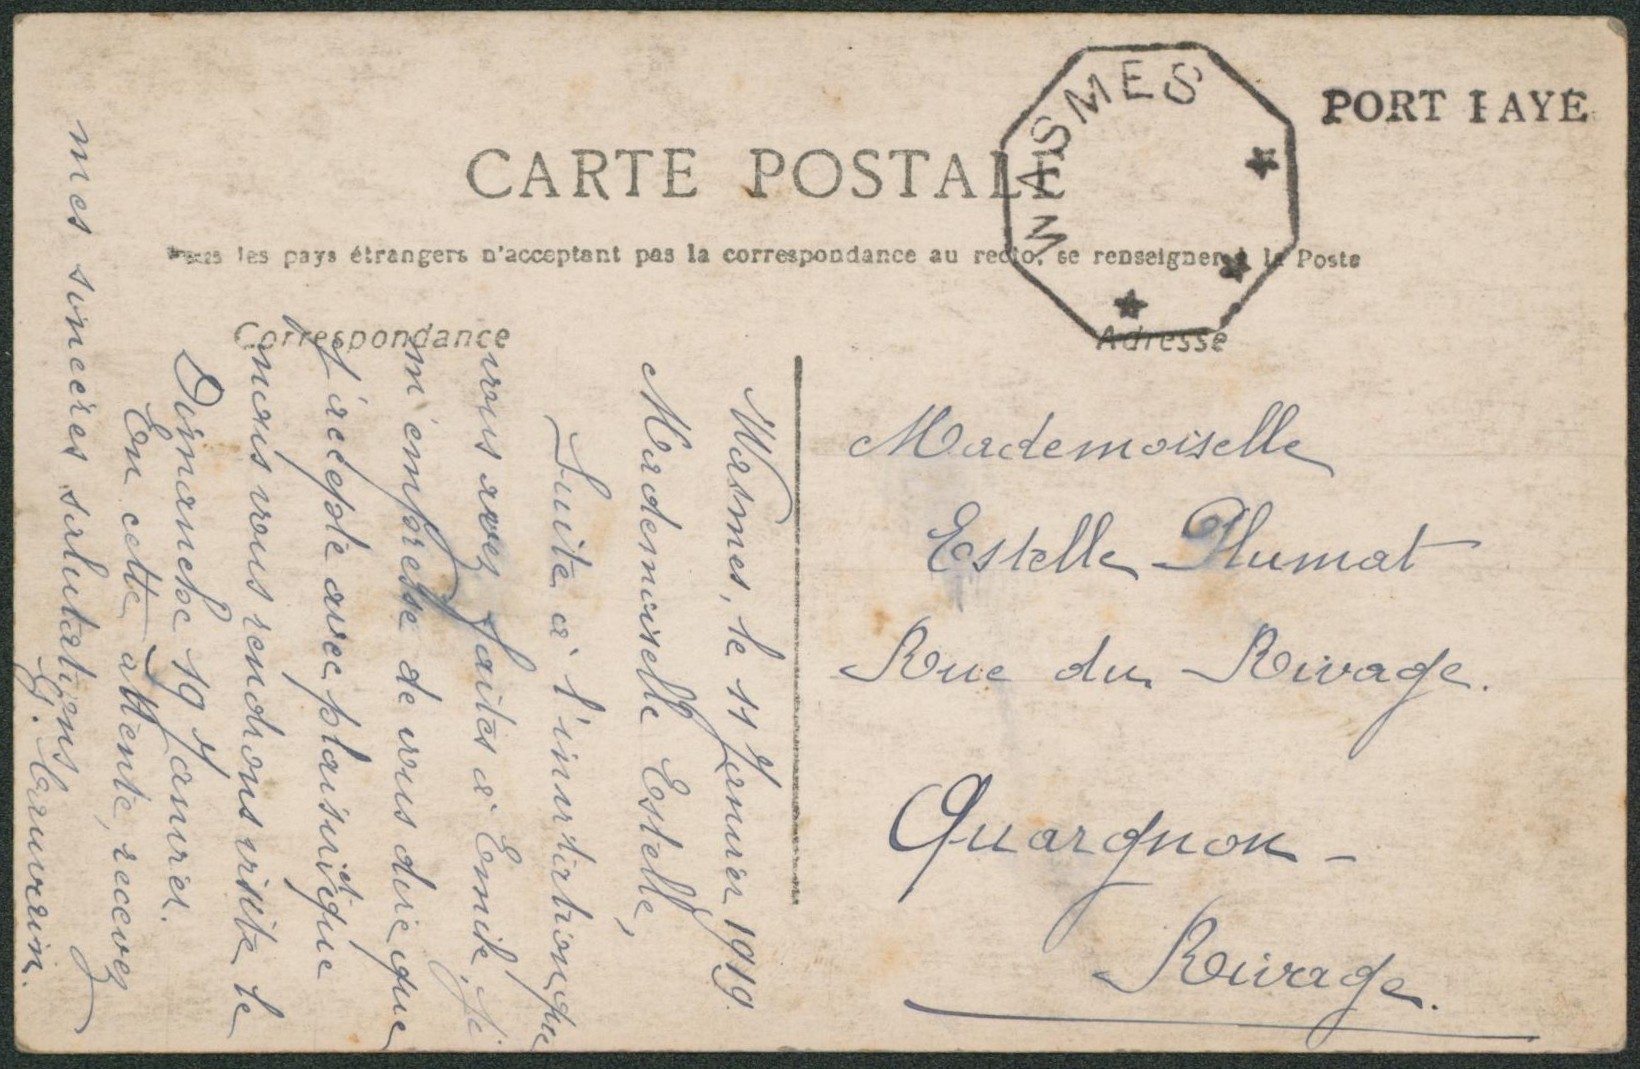 PORT PAYÉ
WASMES
CARTE POSTALE
Tous les pays étrangers n'acceptant pas la correspondance au recto, se renseigner à la Poste
Correspondance
Adresse
Wasmes, le 11 Janvier 1919.
Mademoiselle Estelle,
Suite à l'invitation que
vous avez faites à Emile, je
m'empresse de vous dire que
j'accepte avec plaisir et que
nous vous rendrons visite le
Dimanche 19 Janvier.
En cette attente, recevez
mes sincères salutations
Mademoiselle
Estelle Plumat
Rue du Rivage.
Quaregnon -
Rivage.